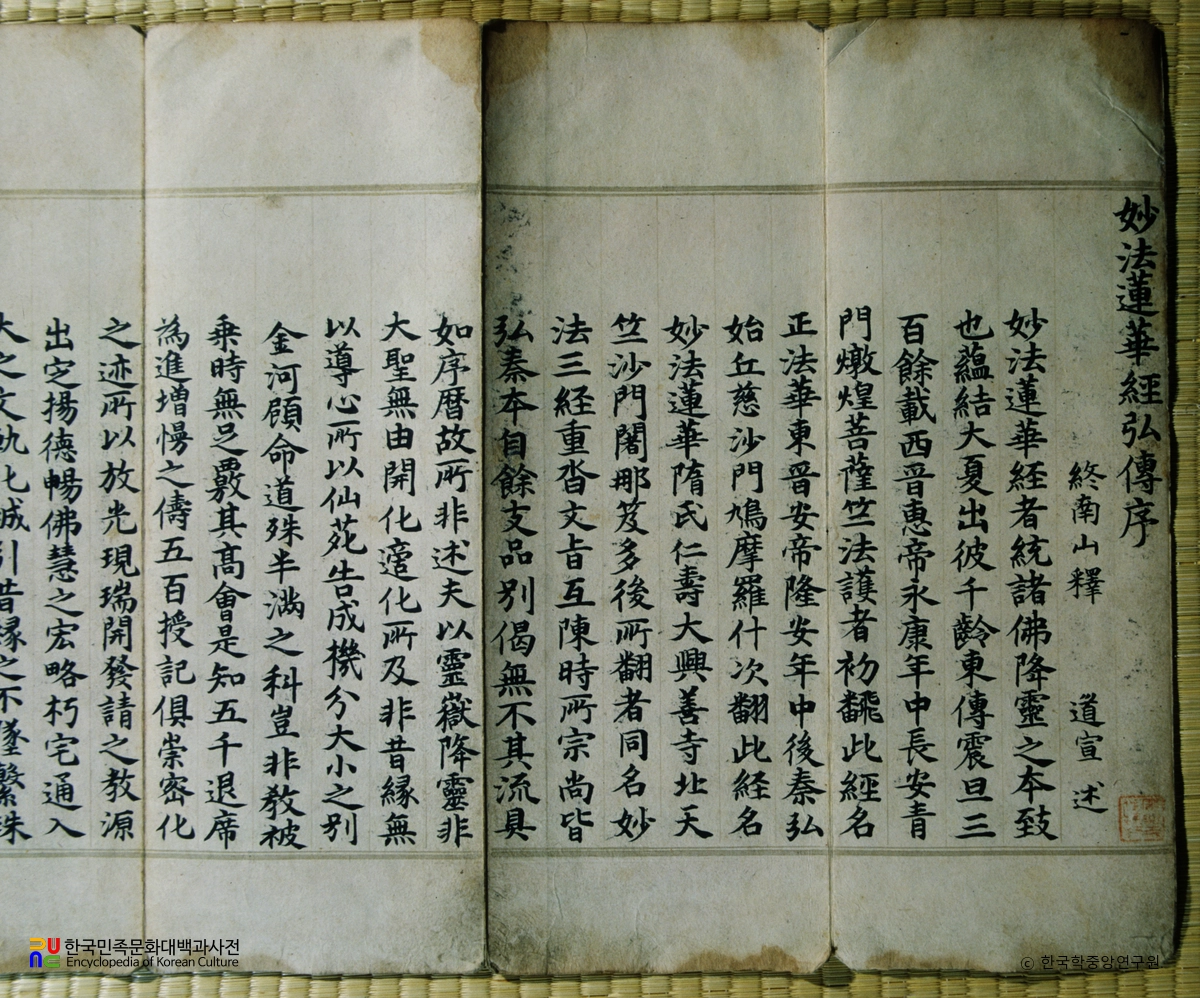 妙法蓮華経弘傳序
終南山釋 道宣 述
妙法蓮華経者統諸佛降靈之本致
也蘊結大夏出彼千齡東傳震旦三
百餘載西晉惠帝永康年中長安青
門燉煌菩薩竺法護者初飜此經名
正法華東晉安帝隆安年中後秦弘
始丘慈沙門鳩摩羅什次翻此経名
妙法蓮華隋氏仁壽大興善寺北天
竺沙門闍那笈多後所翻者同名妙
法三経重沓文旨互陳時所宗尚皆
弘秦本自餘支品別偈無不其流具
如序曆故所非述夫以靈嶽降靈非
大聖無由開化適化所及非昔縁無
以導心所以仙苑告成機分大小之別
金河顧命道殊半滿之科豈非教被
乗時無足覈其高會是知五千退席
為進增慢之儔五百授記俱崇密化
之迹所以放光現瑞開發請之教源
出定揚德暢佛慧之宏略朽宅通入
大之文軌化城引昔縁之不墜繫珠
한국민족문화대백과사전
Encyclopedia of Korean Culture
© 한국학중앙연구원